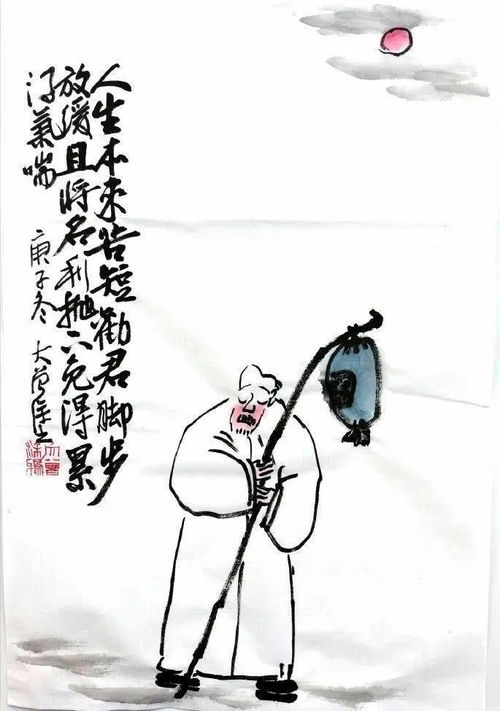 人生本来苦短勸君脚步
放缓且将名利抛去免得累
得氣喘
庚子冬 大